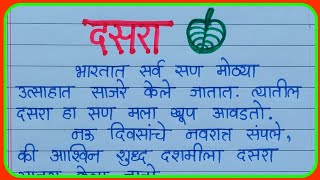 दसरा
भारतात सर्व सण मोठ्या
उत्साहात साजरे केले जातात. त्यातील
दसरा हा सण मला खूप आवडतो.
नऊ दिवसांचे नवरात्र संपले,
की आश्विन शुद्ध दशमीला दसरा